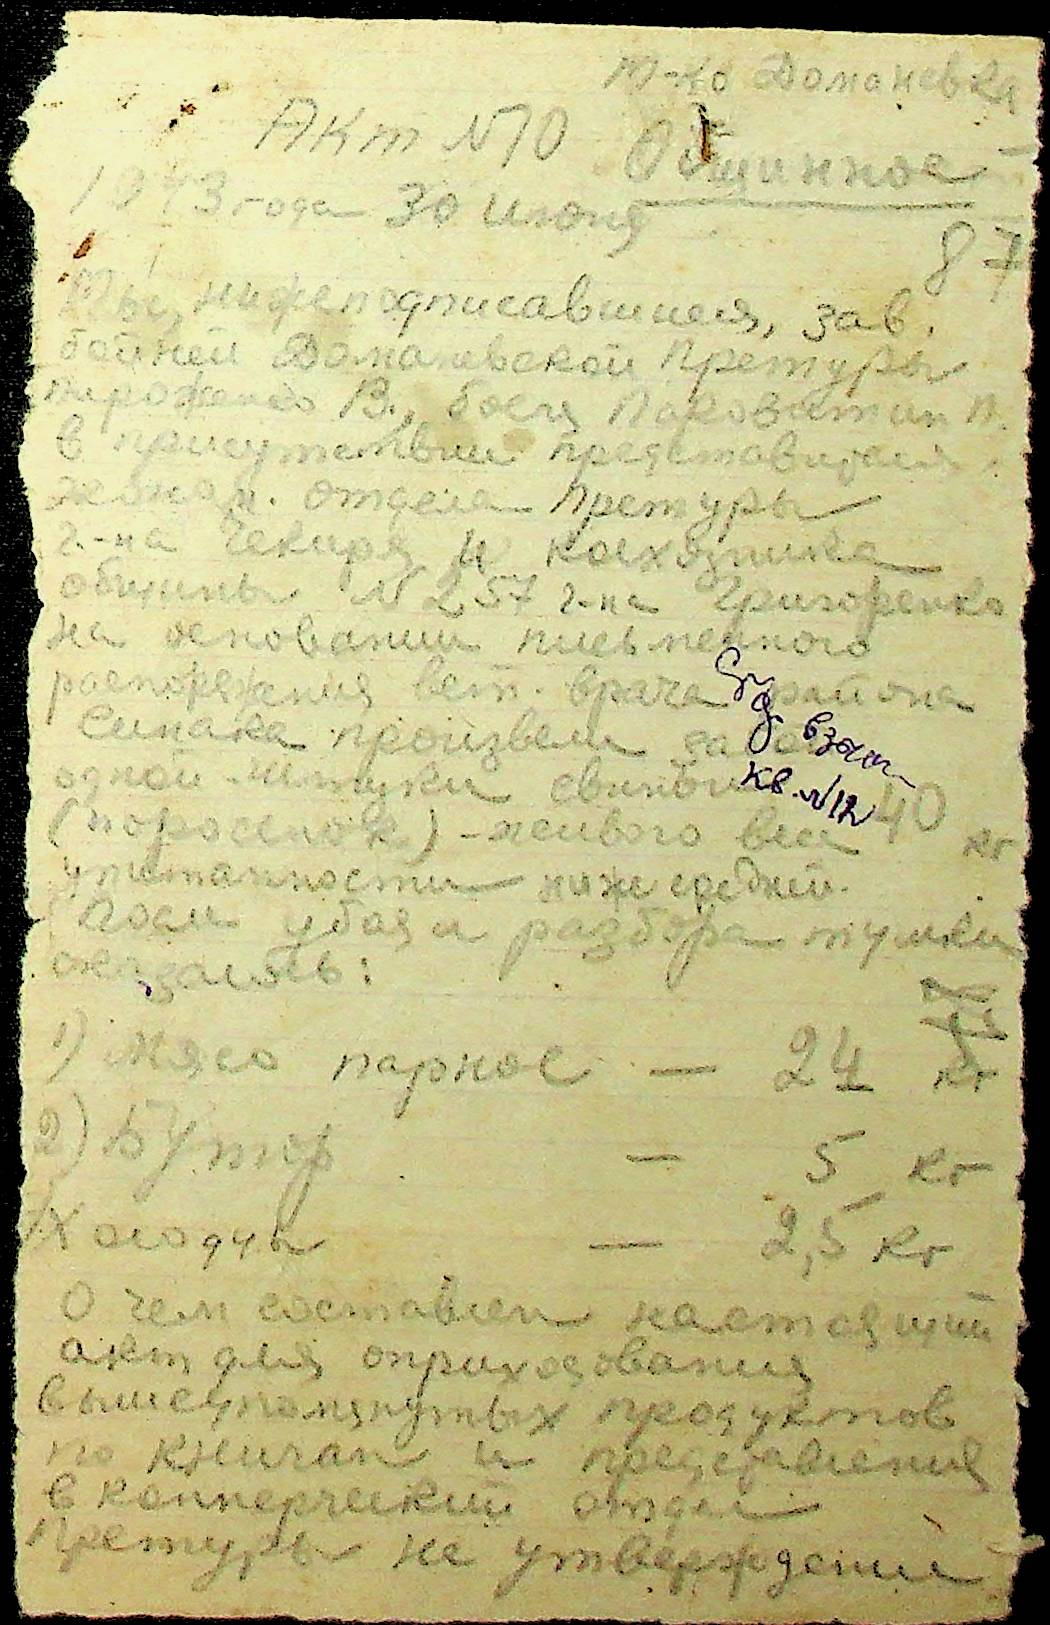 м-ко Доманевка
Акт №10 Общинное
1943 года 30 июня
87
Мы, нижеподписавшиеся, зав.
бойней Доманевской Претуры
Пироженко В., боец П.
в присутствии представителя
жандар. отдела Претуры
г-на Чекиря и колхозника
общины №257 г-на Григоренко
на основании письменного
распоряжения вет. врача района
Симака произвели забой
одной штуки свиньи
(поросенок) - живого веса 40 кг
упитанности ниже средней.
После убоя и разбора тушки
оказалось:
взят
кв. №12
1) Мясо парное — 24 кг
2) Бутор — 5 кг
Холодцы — 2,5 кг
О чем составлен настоящий
акт для оприходования
вышеупомянутых продуктов
по книгам и представления
в коммерческий отдел
Претуры на утверждение